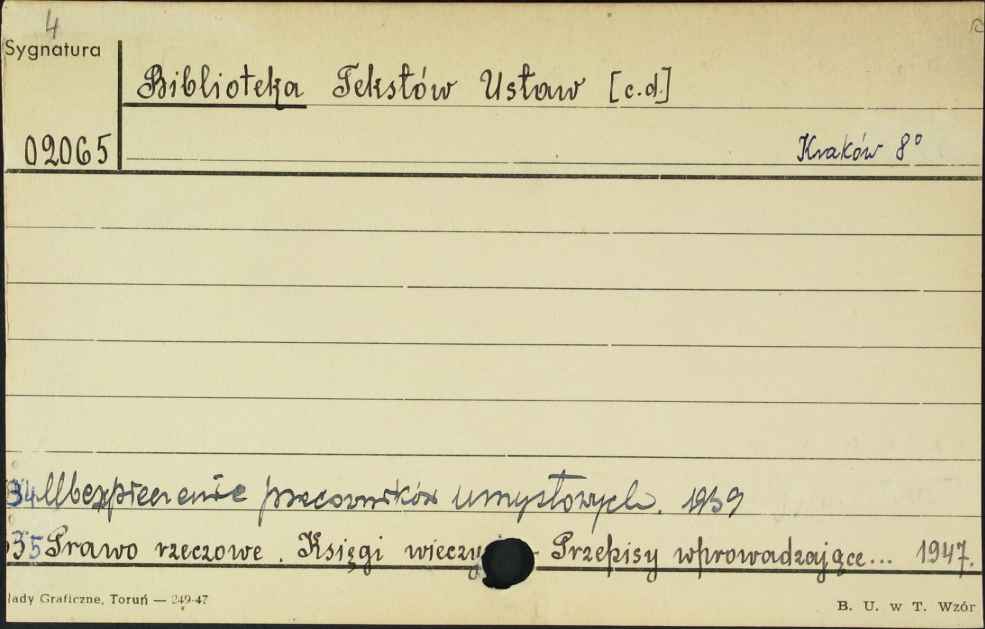 4
Sygnatura
Biblioteka Tekstów Ustaw [c.d.]
02065
Kraków 8°
34 Ubezpieczenie pracowników umysłowych. 1939
35 Prawo rzeczowe. Księgi - Przepisy wprowadzające... 1947.
lady Graficzne, Toruń — 249-47
B. U. w T. Wzór